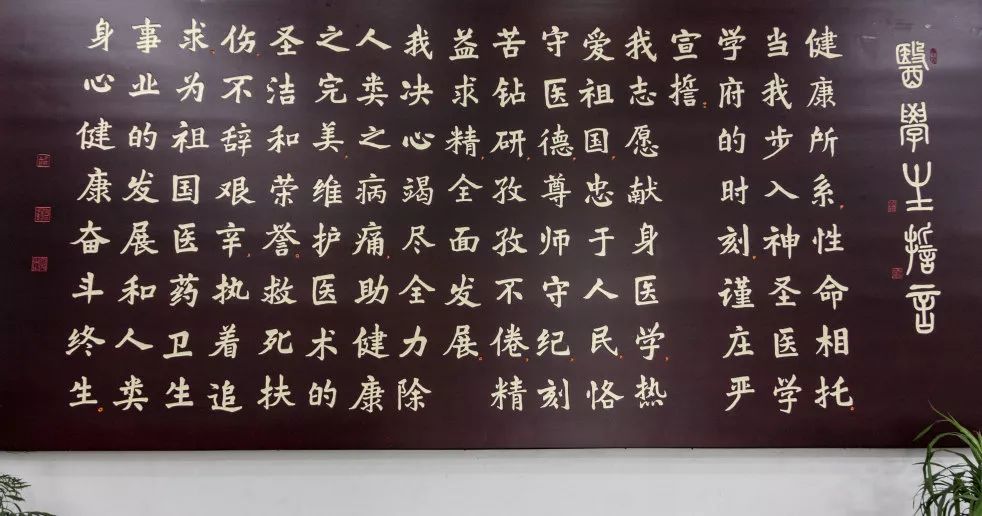 醫學生誓言
健康所系，性命相托。
当我步入神圣医学
学府的时刻，谨庄严
宣誓。
我志愿献身医学，热
爱祖国，忠于人民，恪
守医德，尊师守纪，刻
苦钻研，孜孜不倦，精
益求精，全面发展。
我决心竭尽全力除
人类之病痛，助健康
之完美，维护医术的
圣洁和荣誉。救死扶
伤，不辞艰辛，执着追
求，为祖国医药卫生
事业的发展和人类
身心健康奋斗终生。